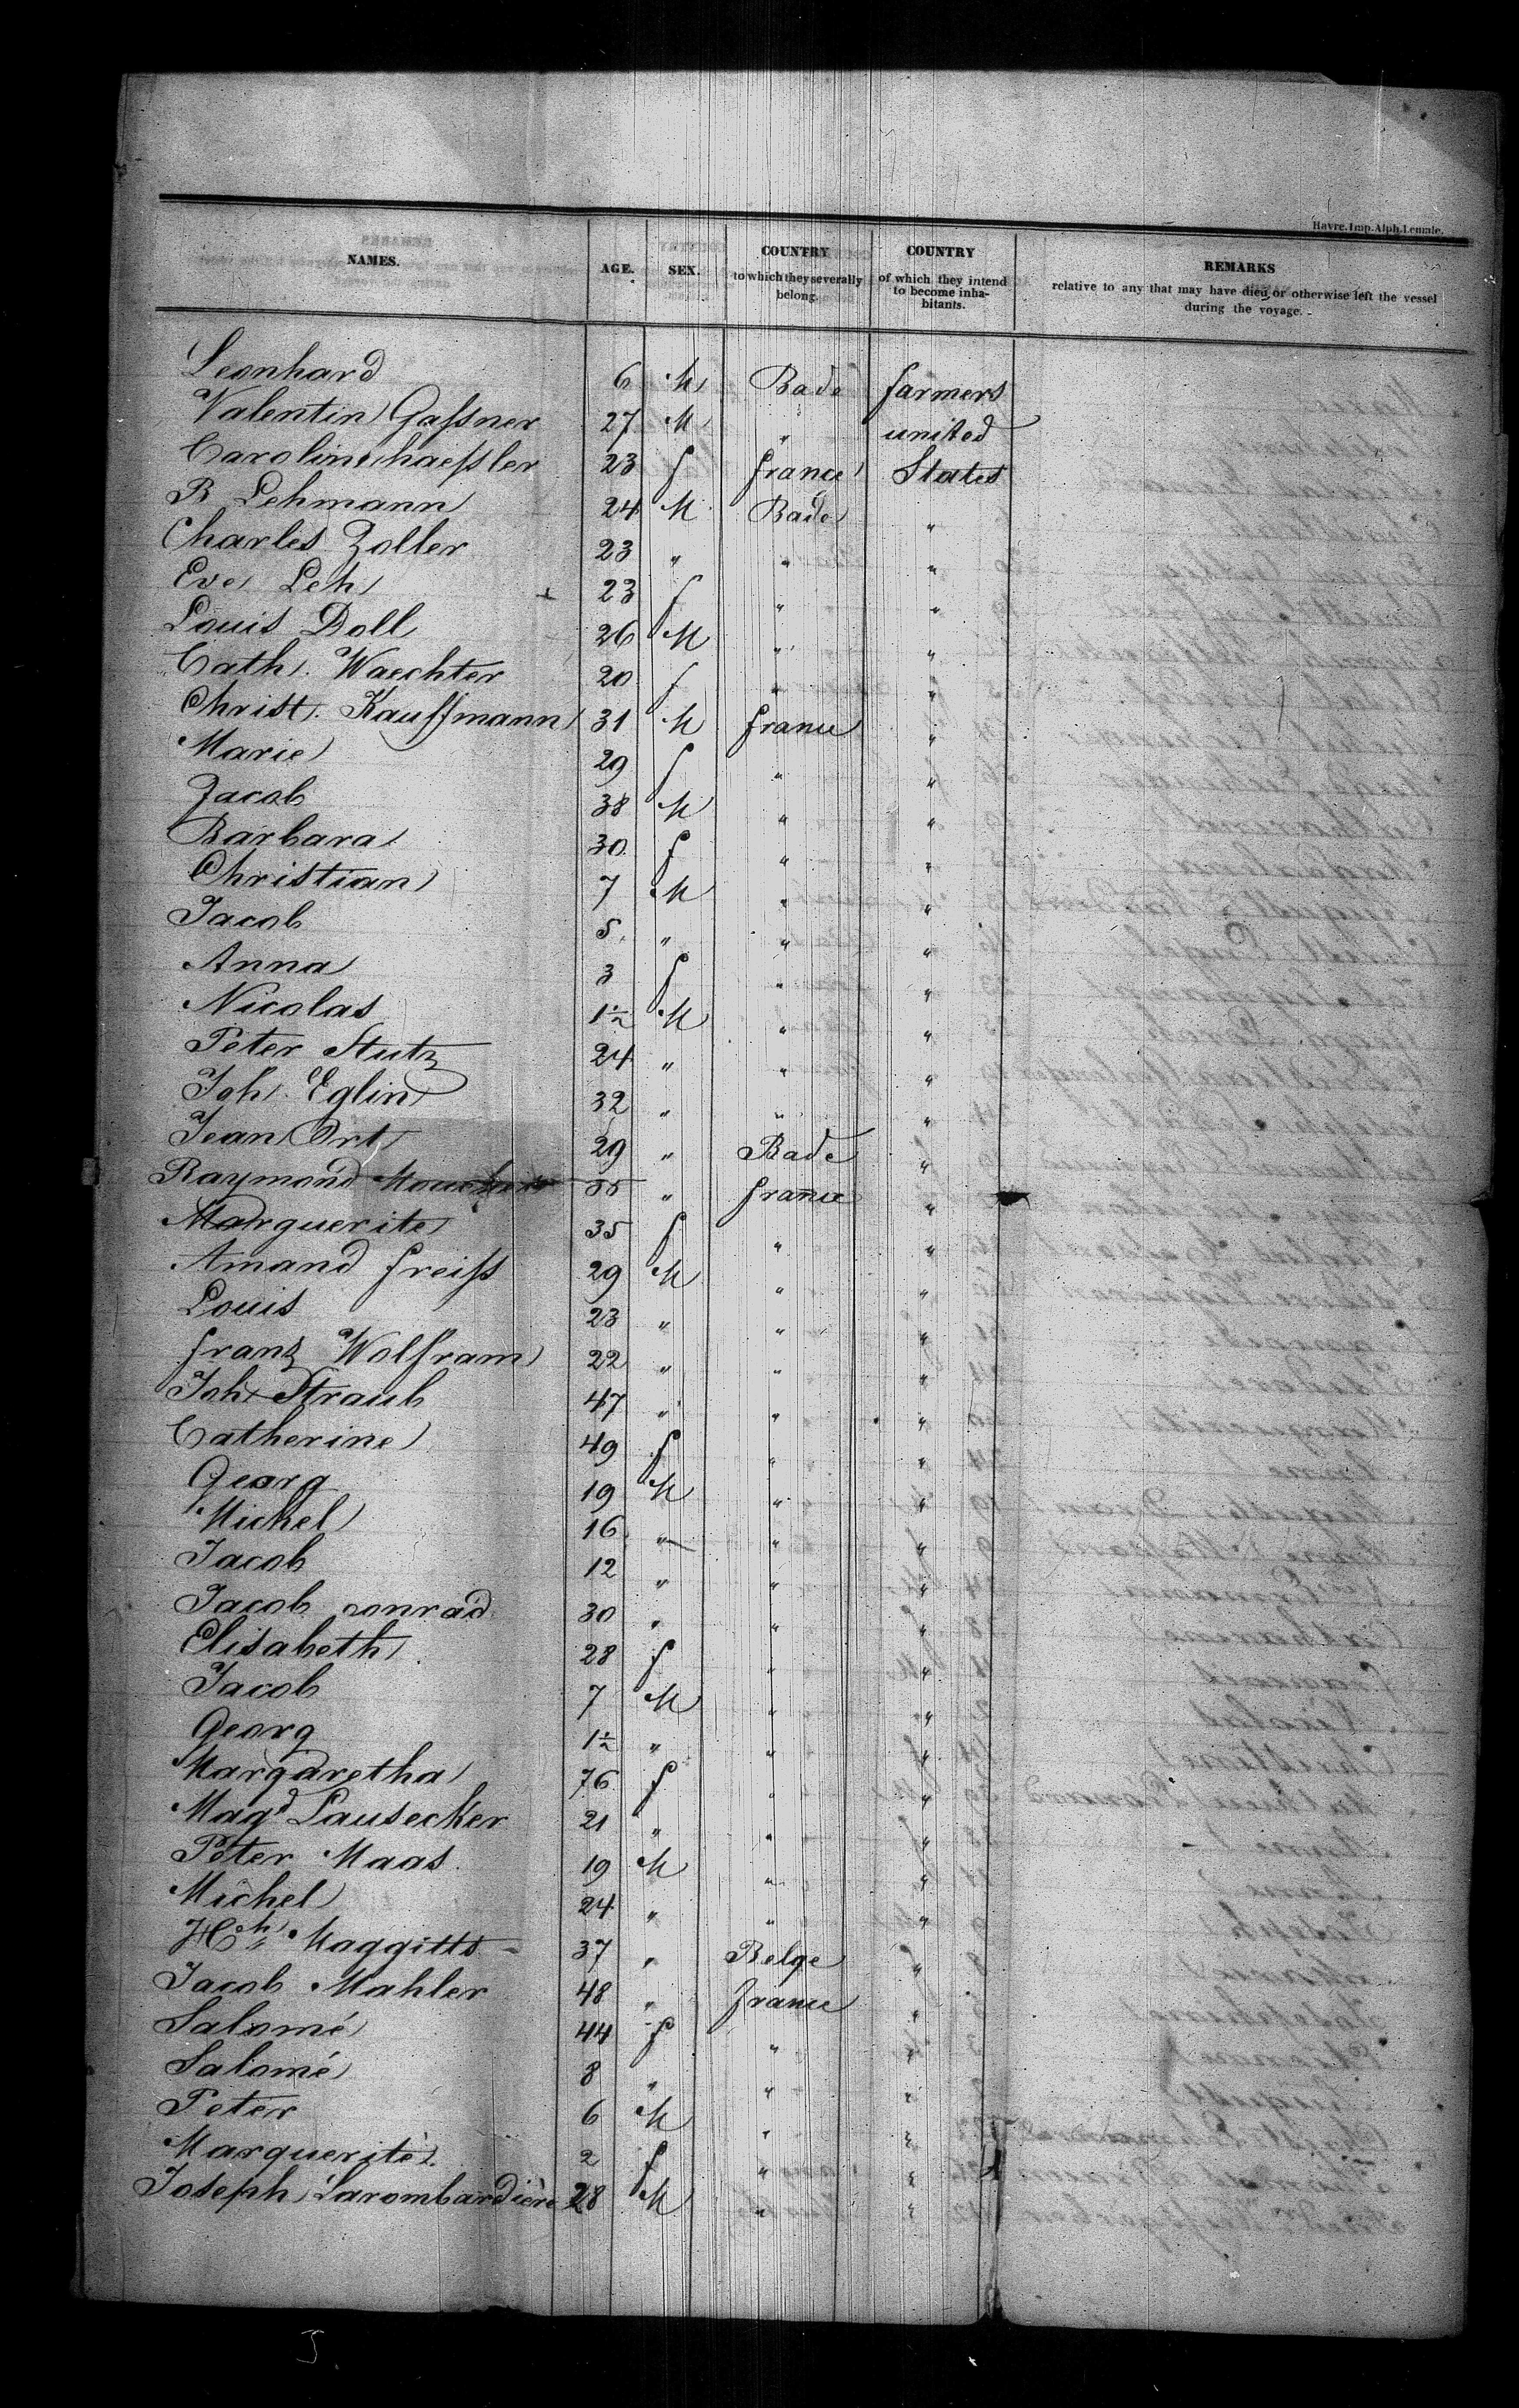 Havre. Imp. Alph. Lemale.
NAMES. AGE. SEX. COUNTRY to which they severally belong. COUNTRY of which they intend to become inhabitants. REMARKS relative to any that may have died, or otherwise left the vessel during the voyage.
Leonhard 6 M Bade farmers
Valentin Gaßner 27 M " united
Caroline haeßler 23 f france States
B Lehmann 24 M Bade "
Charles Zoller 23 " " "
Eve Leh 23 f " "
Louis Doll 26 M " "
Cath. Waechter 20 f " "
Christ. Kauffmann 31 M france "
Marie 29 f " "
Jacob 38 M " "
Barbara 30 f " "
Christian 7 M " "
Jacob 5 " " "
Anna 3 f " "
Nicolas 1½ M " "
Peter Stutz 24 " " "
Joh. Eglin 32 " " "
Jean Ort 29 " Bade "
Raymond 55 " france "
Marguerite 35 f " "
Amand freiß 29 M " "
Louis 23 " " "
franz Wolfram 22 " " "
Joh Straub 47 " " "
Catherine 49 f " "
Georg 19 M " "
Michel 16 " " "
Jacob 12 " " "
Jacob conrad 30 " " "
Elisabeth 28 f " "
Jacob 7 M " "
Georg 1½ " " "
Margaretha 76 f " "
Magd Lausecker 21 " " "
Peter Maas 19 M " "
Michel 24 " " "
Hch Maggitts 37 " Belge "
Jacob Mahler 48 " france "
Salomé 44 f " "
Salomé 8 " " "
Peter 6 M " "
Marguerite 2 f " "
Joseph Larombardière 28 M " "